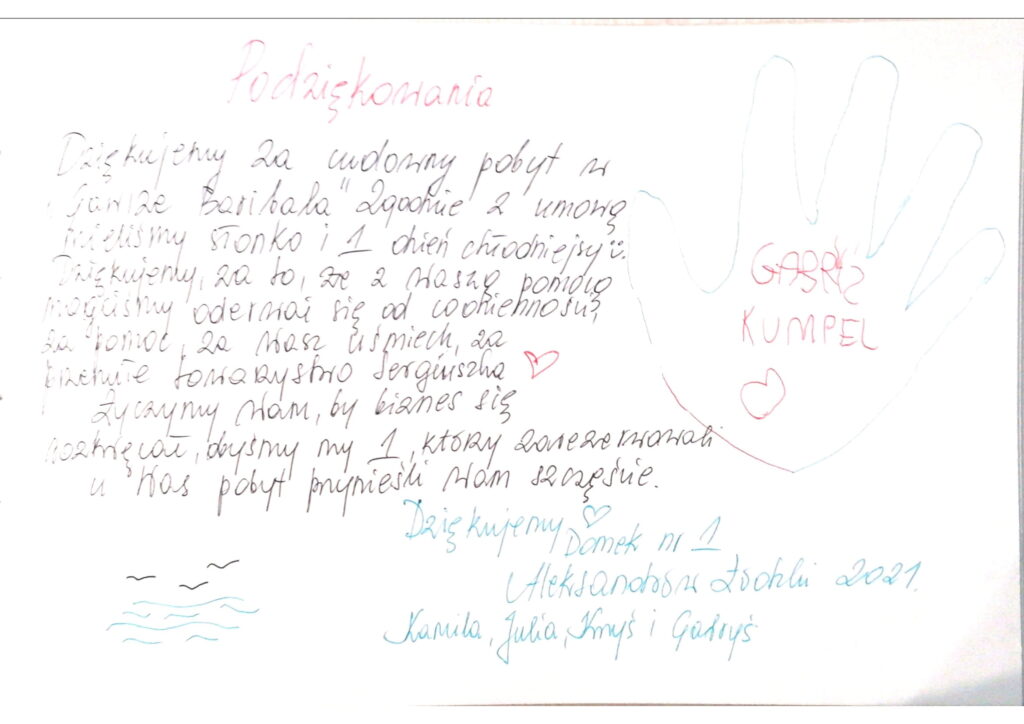 Podziękowania
Dziękujemy za cudowny pobyt w
"Gawrze Baribala" zgodnie z umową
mieliśmy słonko i 1 dzień chłodniejszy ü.
Dziękujemy, za to, że z waszą pomocą
mogliśmy oderwać się od codzienności,
za pomoc, za wasz uśmiech, za
przemiłe towarzystwo Serguszka ♡
Życzymy wam, by biznes się
rozkręcał, abyśmy my 1, którzy zarezerwowali
u Was pobyt przynieśli wam szczęście.
Dziękujemy ♡
Domek nr 1
Aleksandrów Łódzki 2021.
Kamila, Julia, Krzyś i Gabryś
GABRYŚ
KUMPEL